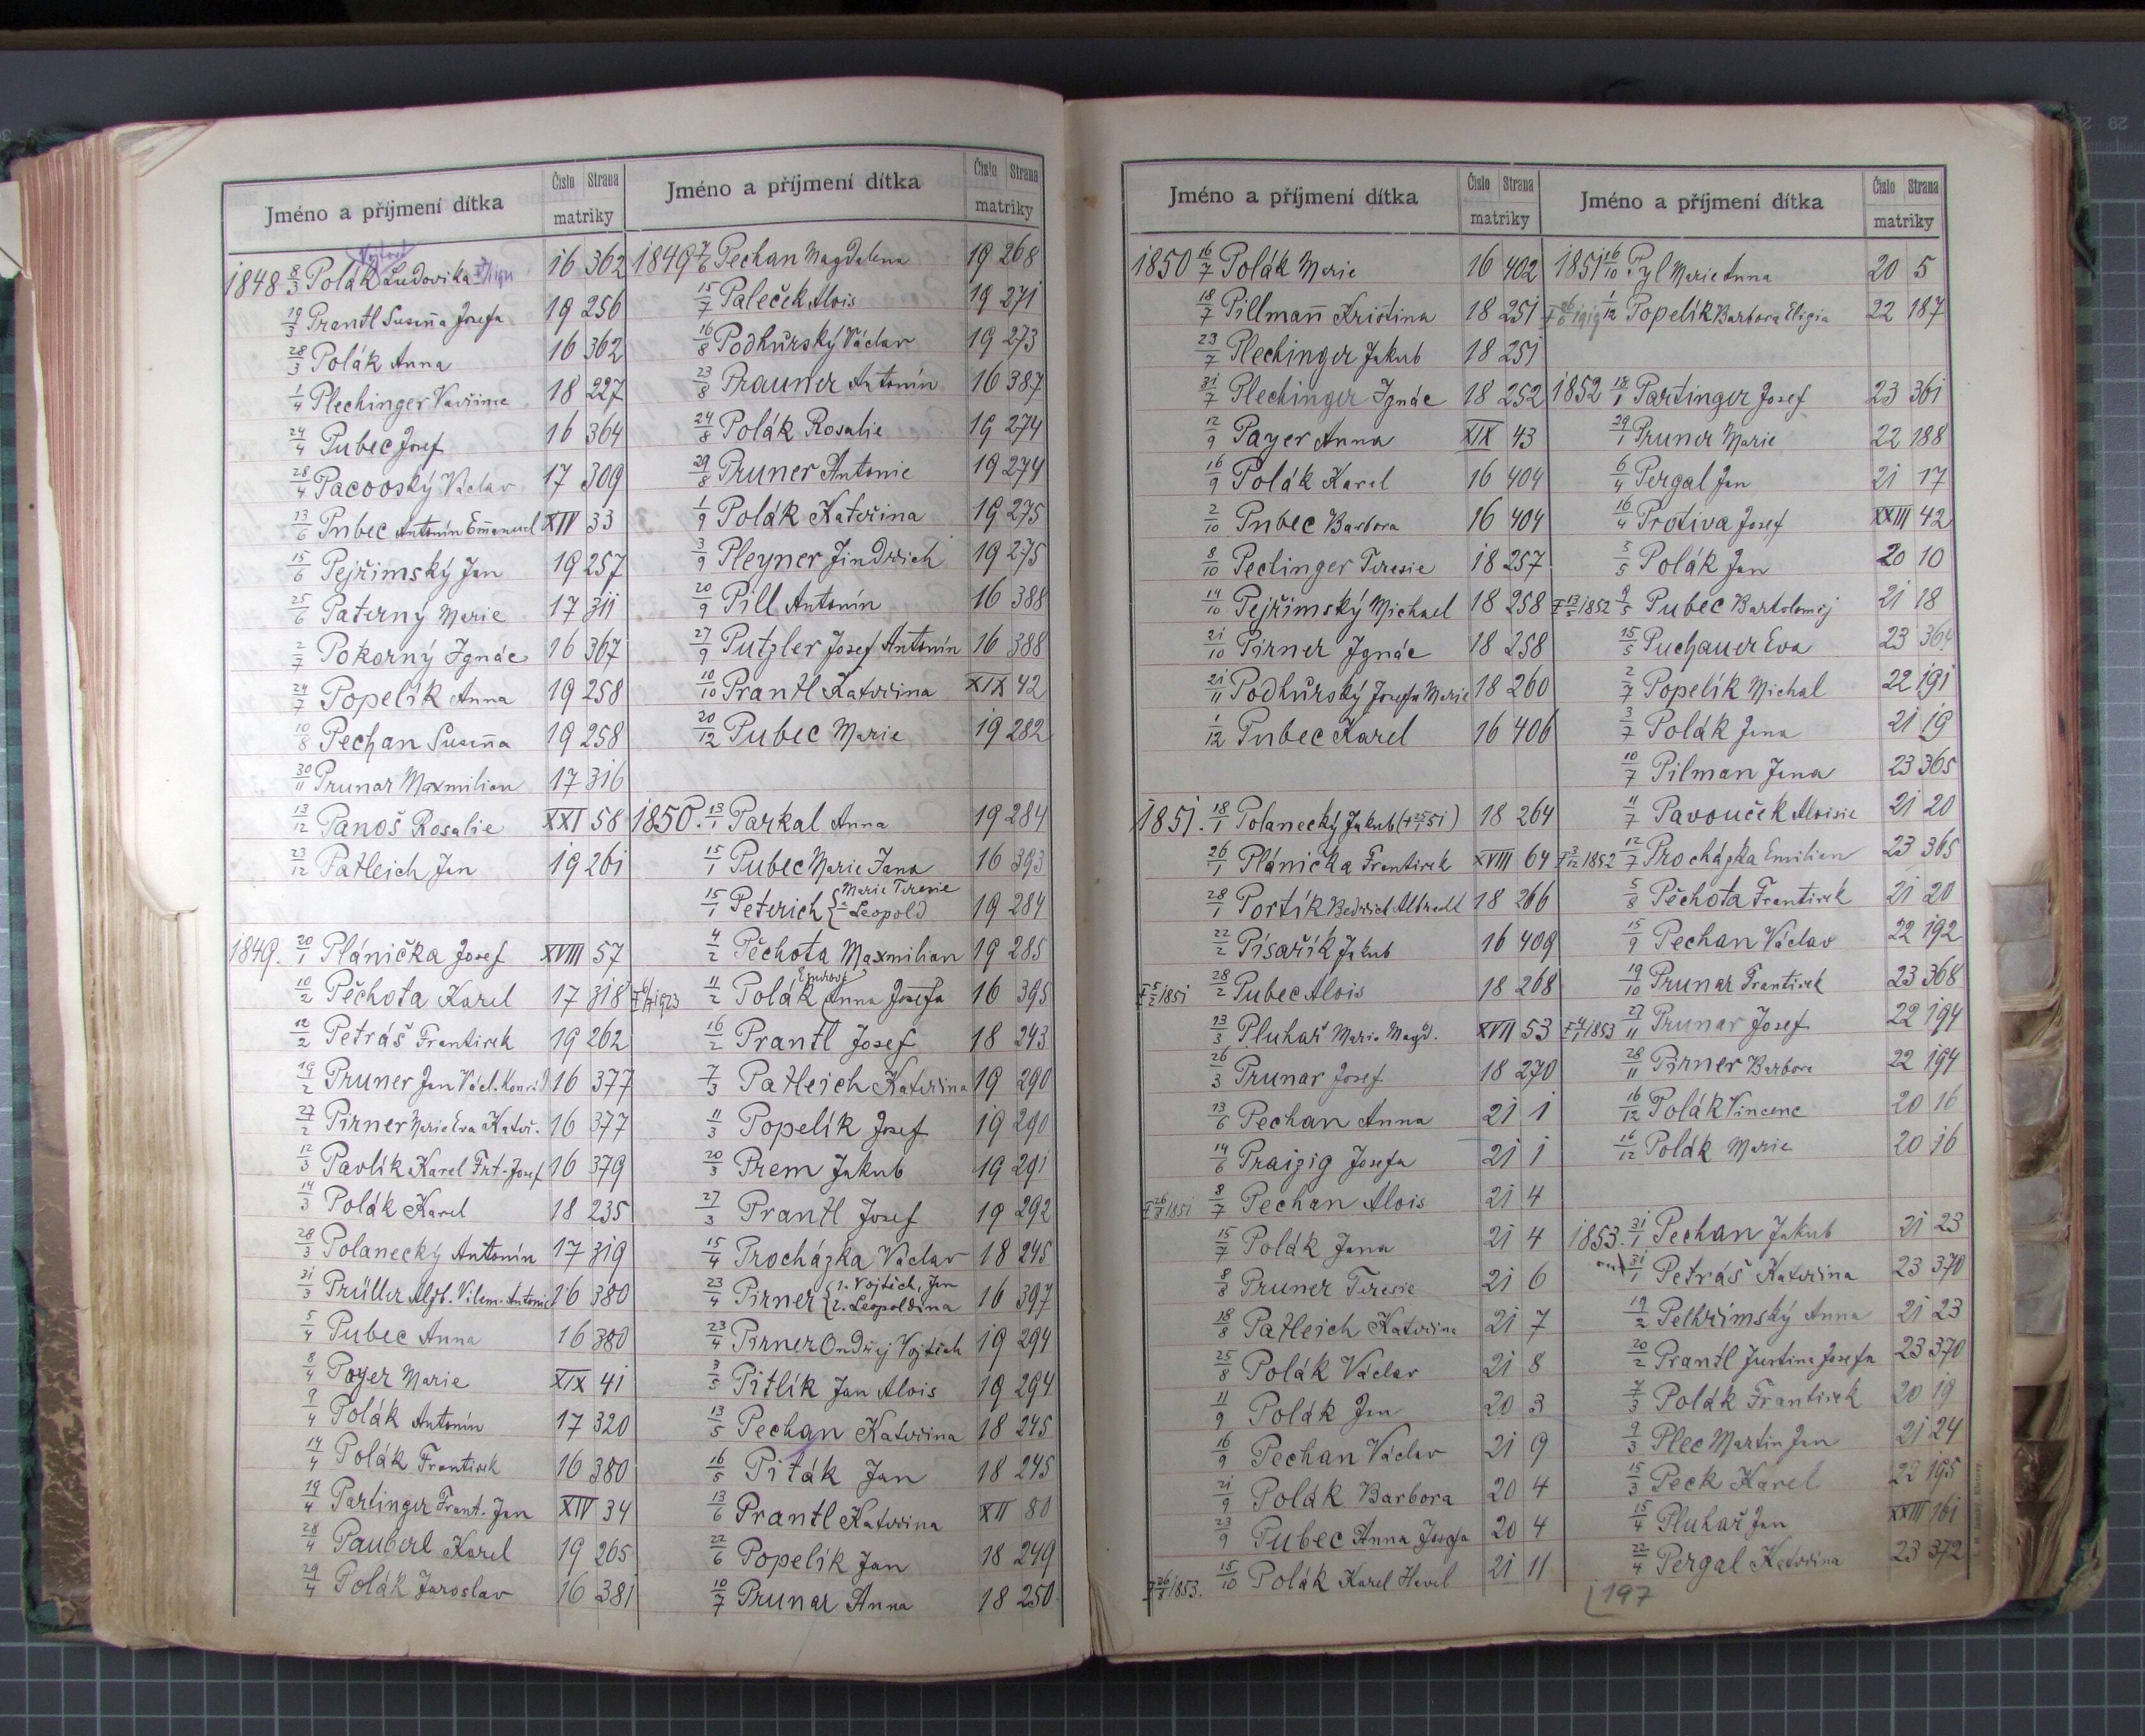 Jméno a příjmení dítka Číslo Strana matriky
1848 8/3 Polák Ludovika 16 362
19/3 Prantl Susanna Josefa 19 256
28/3 Polák Anna 16 362
1/4 Plechinger Vavřinec 18 227
24/4 Pubec Josef 16 364
28/4 Pacovský Václav 17 309
13/6 Pubec Antonín Emanuel XIV 33
15/6 Pejřimský Jan 19 257
25/6 Paterný Marie 17 311
2/7 Pokorný Ignác 16 367
24/7 Popelík Anna 19 258
10/8 Pechan Susanna 19 258
30/11 Prunar Maxmilian 17 316
13/12 Panoš Rosalie XXI 58
23/12 Patleich Jan 19 261
1849. 20/1 Plánička Josef XVIII 57
10/2 Pěchota Karel 17 318
12/2 Petráš Frantisek 19 262
19/2 Pruner Jan Václ. Konrád 16 377
27/2 Pirner Marie Eva Kateř. 16 377
12/3 Pavlík Karel Frt. Josef 16 379
14/3 Polák Karel 18 235
28/3 Polanecký Antonín 17 319
31/3 Prüller Algb. Vilem. Antonie 16 380
5/4 Pubec Anna 16 380
8/4 Poyer Marie XIX 41
9/4 Polák Antonín 17 320
14/4 Polák Frantisek 16 380
19/4 Partinger Frant. Jan XIV 34
28/4 Pauberl Karel 19 265
29/4 Polák Jaroslav 16 381
Jméno a příjmení dítka Číslo Strana matriky
1849 7/6 Pechan Magdalena 19 268
15/7 Paleček Alois 19 271
16/8 Podhůrský Václav 19 273
23/8 Prauner Antonín 16 387
24/8 Polák Rosalie 19 274
29/8 Pruner Antonie 19 274
1/9 Polák Kateřina 19 275
3/9 Pleyner Jindřich 19 275
20/9 Pill Antonín 16 388
27/9 Putzler Josef Antonín 16 388
10/10 Prantl Kateřina XIX 42
20/12 Pubec Marie 19 282
1850. 13/1 Parkal Anna 19 284
15/1 Pubec Marie Jana 16 393
15/1 Peterich { Marie Teresie
- Leopold 19 284
4/2 Pěchota Maxmilian 19 285
11/2 Polák Anna Josefa 16 395
16/2 Prantl Josef 18 243
7/3 Patleich Kateřina 19 290
11/3 Popelík Josef 19 290
20/3 Prem Jakub 19 291
27/3 Prantl Josef 19 292
15/4 Procházka Václav 18 245
23/4 Pirner { 1. Vojtěch, Jan
2. Leopoldina 16 397
23/4 Pirner Ondřej Vojtěch 19 294
3/5 Pitlík Jan Alois 19 294
13/5 Pechan Kateřina 18 245
16/5 Piták Jan 18 245
13/6 Prantl Kateřina XII 80
22/6 Popelík Jan 18 249
10/7 Prunar Anna 18 250
Jméno a příjmení dítka Číslo Strana matriky
1850 16/7 Polák Marie 16 402
18/7 Pillmann Kristina 18 251
23/7 Plechinger Jakub 18 251
31/7 Plechinger Ignác 18 252
12/9 Payer Anna XIX 43
16/9 Polák Karel 16 404
2/10 Pubec Barbora 16 404
8/10 Peclinger Teresie 18 257
14/10 Pejřimský Michael 18 258
21/10 Pirner Ignác 18 258
21/11 Podhůrský Josefa Marie 18 260
1/12 Pubec Karel 16 406
1851. 18/1 Polanecký Jakub (+ 25/1 51) 18 264
26/1 Plánička Frantisek XVIII 64
28/1 Portík Bedřich Albrecht 18 266
22/2 Písařík Jakub 16 409
28/2 Pubec Alois 18 268
23/3 Pluhař Marie Magd. XVII 53
26/3 Prunar Josef 18 270
13/6 Pechan Anna 21 1
14/6 Praizig Josefa 21 1
† 26/8 1851 8/7 Pechan Alois 21 4
15/7 Polák Jana 21 4
8/8 Pruner Teresie 21 6
18/8 Patleich Kateřina 21 7
25/8 Polák Václav 21 8
11/9 Polák Jan 20 3
16/9 Pechan Václav 21 9
21/9 Polák Barbora 20 4
23/9 Pubec Anna Josefa 20 4
† 26/8 1853. 15/10 Polák Karel Havel 21 11
Jméno a příjmení dítka Číslo Strana matriky
1851 16/10 Pyl Marie Anna 20 5
1/12 Popelík Barbora Eligia 22 187
1852 18/1 Partinger Josef 23 361
29/1 Pruner Marie 22 188
6/4 Pergal Jan 21 17
16/4 Protiva Josef XXIII 42
5/5 Polák Jan 20 10
† 13/5 1852 9/5 Pubec Bartoloměj 21 18
15/5 Puchauer Eva 23 364
2/7 Popelík Michal 22 191
3/7 Polák Jana 21 19
10/7 Pilman Jana 23 365
11/7 Pavouček Aloisie 21 20
† 3/12 1852 12/7 Procházka Emilian 23 365
5/8 Pěchota Frantisek 21 20
15/9 Pechan Václav 22 192
19/10 Prunar Frantisek 23 368
27/11 Prunar Josef 22 194
28/11 Pirner Barbora 22 194
16/12 Polák Vincenc 20 16
16/12 Polák Marie 20 16
1853. 31/1 Pechan Jakub 21 23
31/1 Petráš Kateřina 23 370
19/2 Pelhřimský Anna 21 23
20/2 Prantl Justina Josefa 23 370
7/3 Polák Frantisek 20 19
9/3 Plec Martin Jan 21 24
15/3 Peck Karel 22 195
15/4 Pluhař Jan XXIII 161
22/4 Pergal Kateřina 23 372
197